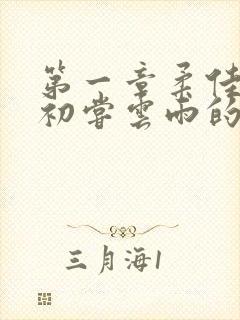 第一章柔佳
初尝雲雨的
三月海1